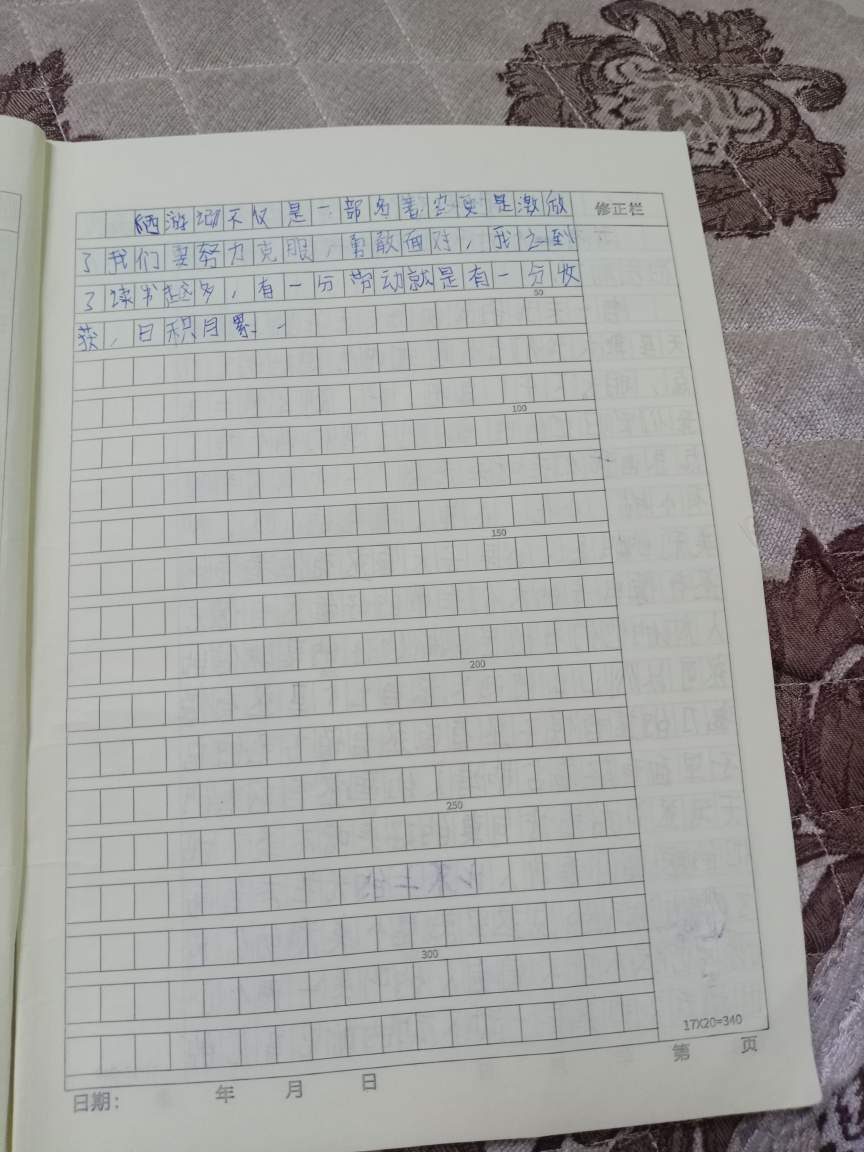 《西游记不仅是一部名著,它更是激放
了我们要努力克服,勇敢面对,我之到
了读书越多,有一分劳动就是有一分收
获,日积月累.
修正栏
50
100
150
200
250
300
17X20=340
日期: 年 月 日
第 页